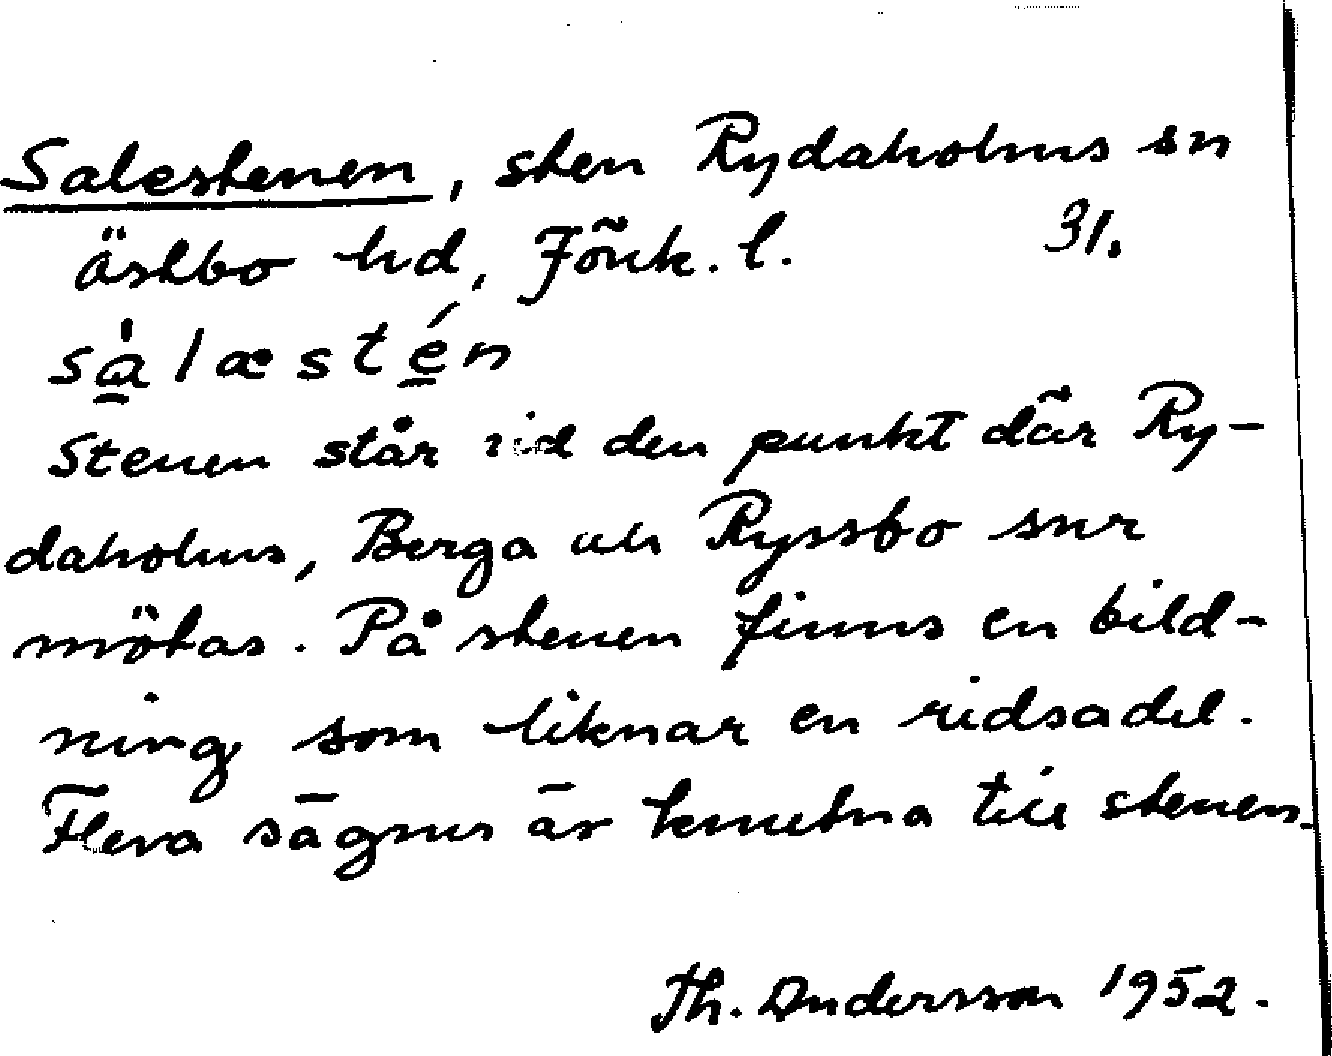 Salestenen, sten Rydaholms sn
Östbo hd, Jönk. l. 31.
sa̱̍læsté̱n
Stenen står vid den punkt där Ry-
daholms, Berga och Ryssbo snr
mötas. På stenen finns en bild-
ning som liknar en ridsadel.
Flera sägner är knutna till stenen.
Th. Andersson 1952.